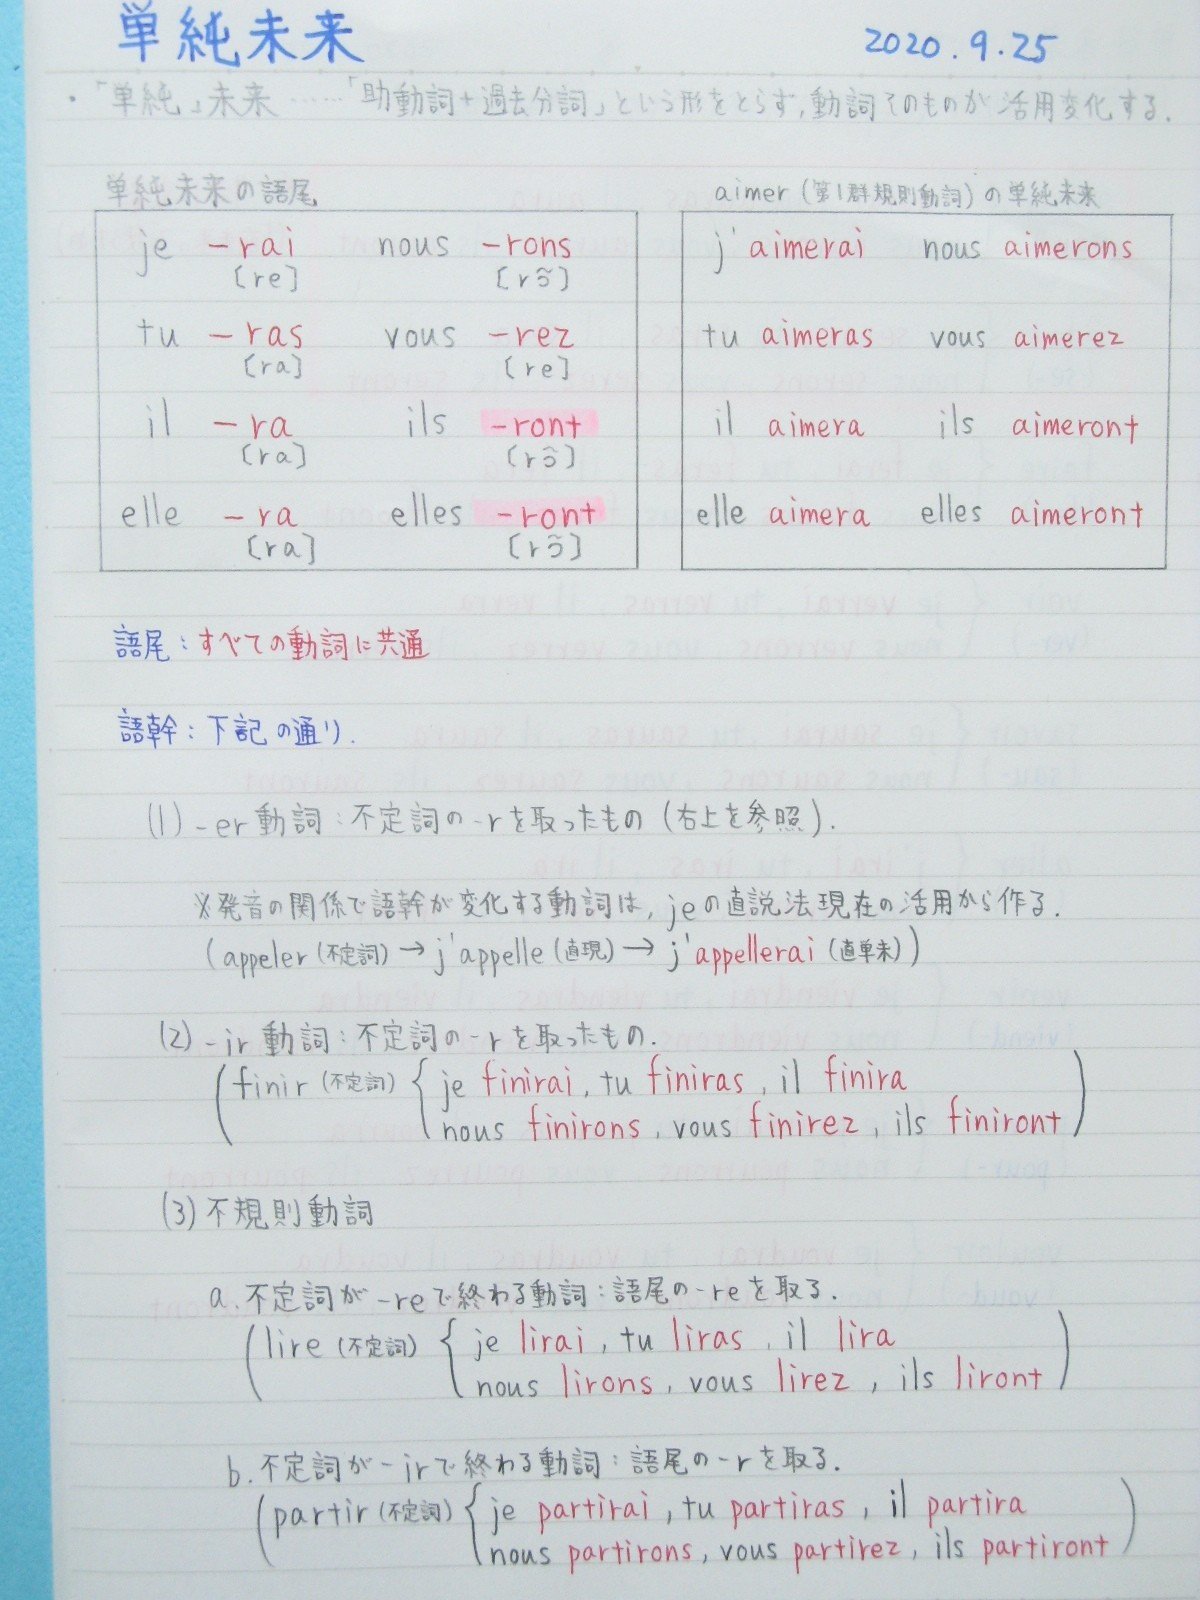 単純未来 2020.9.25
・「単純」未来……「助動詞+過去分詞」という形をとらず,動詞そのものが活用変化する.
単純未来の語尾 aimer (第1群規則動詞) の単純未来
je -rai nous -rons j'aimerai nous aimerons
[re] [rɔ̃]
tu -ras vous -rez tu aimeras vous aimerez
[ra] [re]
il -ra ils -ront il aimera ils aimeront
[ra] [rɔ̃]
elle -ra elles -ront elle aimera elles aimeront
[ra] [rɔ̃]
語尾:すべての動詞に共通
語幹:下記の通り.
(1) -er動詞:不定詞の-rを取ったもの (右上を参照).
※発音の関係で語幹が変化する動詞は, jeの直説法現在の活用から作る.
(appeler (不定詞) → j'appelle (直現) → j'appellerai (直単未))
(2) -ir動詞:不定詞の-rを取ったもの.
(finir (不定詞) { je finirai, tu finiras, il finira
nous finirons, vous finirez, ils finiront)
(3) 不規則動詞
a. 不定詞が-reで終わる動詞:語尾の-reを取る.
(lire (不定詞) { je lirai, tu liras, il lira
nous lirons, vous lirez, ils liront)
b. 不定詞が-irで終わる動詞:語尾の-rを取る.
(partir (不定詞) { je partirai, tu partiras, il partira
nous partirons, vous partirez, ils partiront)